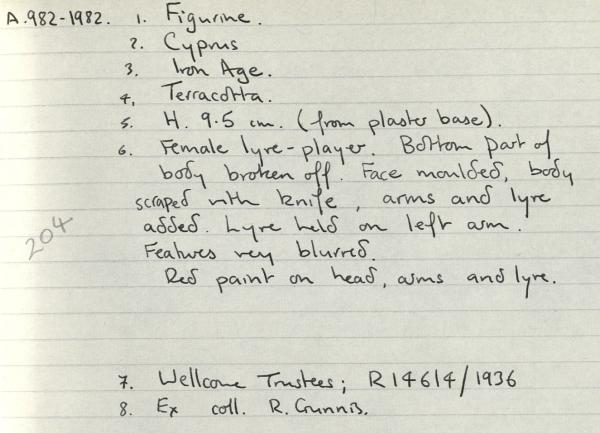 A.982-1982. 1. Figurine.
2. Cyprus
3. Iron Age.
4. Terracotta.
5. H. 9.5 cm. (from plaster base).
6. Female lyre-player. Bottom part of
body broken off. Face moulded, body
scraped with knife, arms and lyre
added. Lyre held on left arm.
204
Features very blurred.
Red paint on head, arms and lyre.
7. Wellcome Trustees; R14614/1936
8. Ex coll. R. Gunnis.